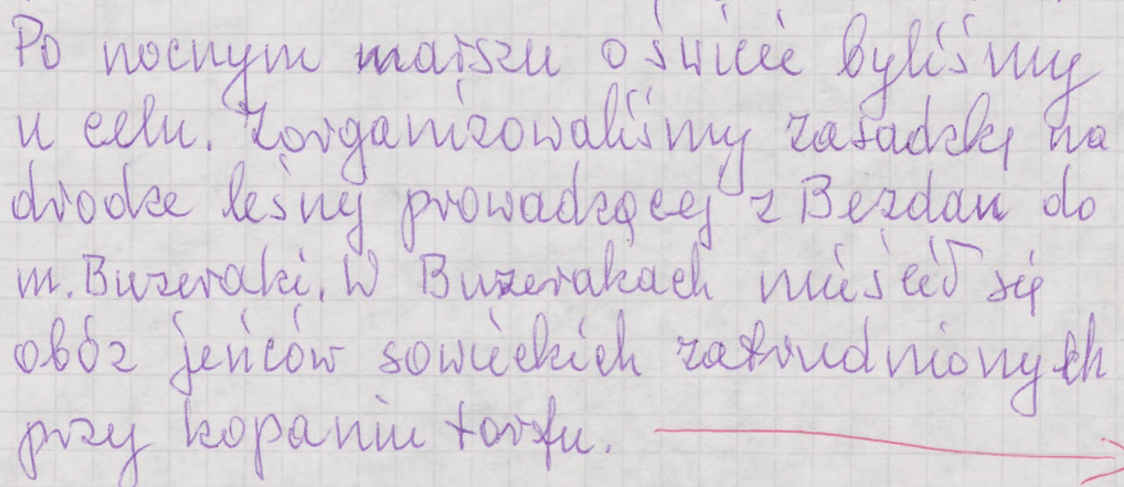 Po nocnym marszu o świcie byliśmy
u celu. Zorganizowaliśmy zasadzkę na
drodze leśnej prowadzącej z Bezdan do
m. Buzeraki. W Buzerakach mieścił się
obóz jeńców sowieckich zatrudnionych
przy kopaniu torfu.